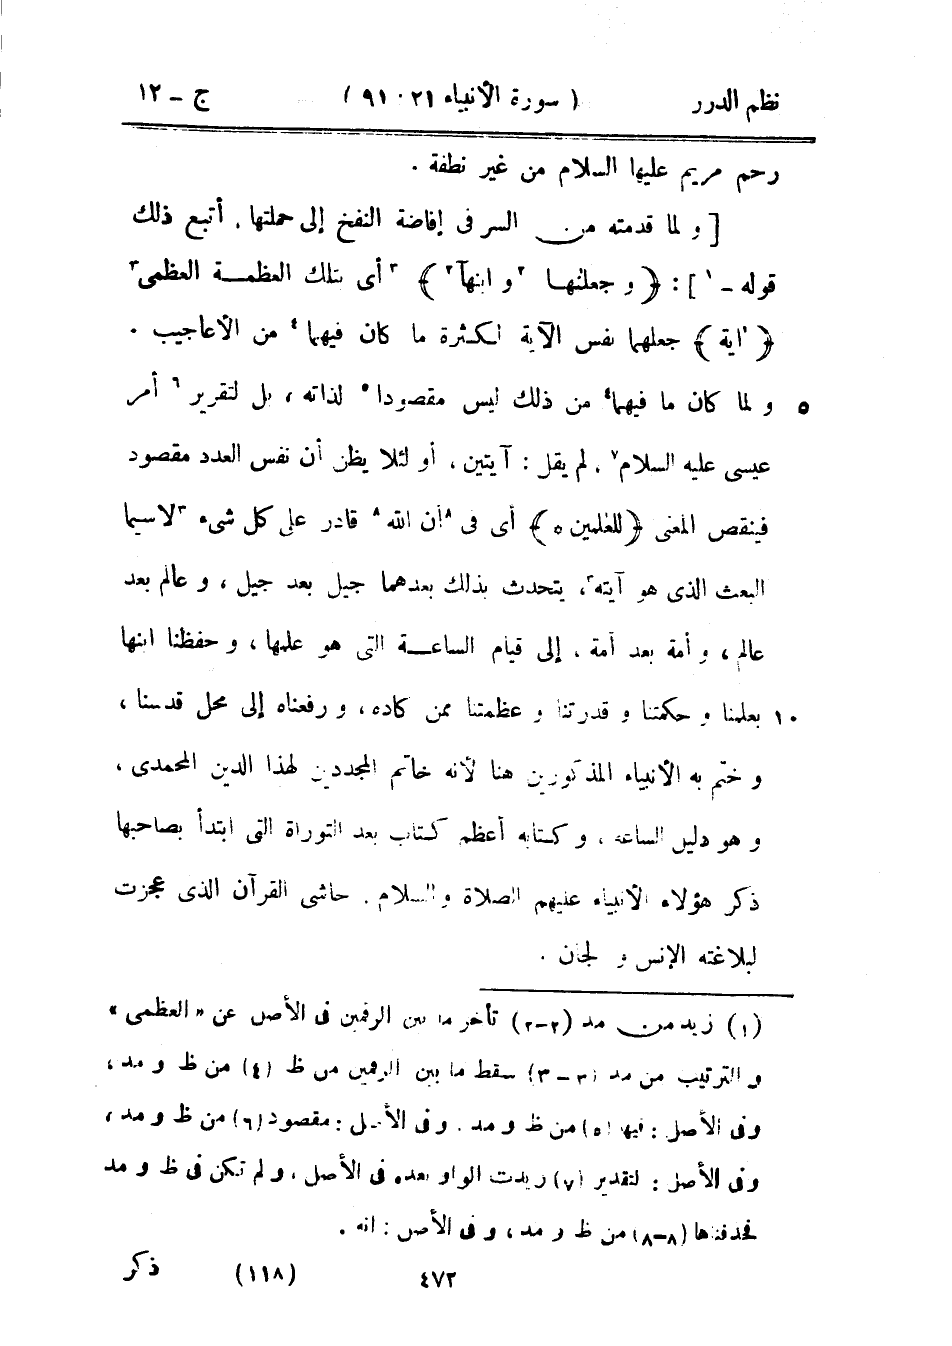 نظم الدرر ( سورة الأنبياء ٢١ : ٩١ ) ج – ١٢
رحم مريم عليها السلام من غير نطفة .
[ و لما قدمته من السر فى إفاضة النفخ إلى جملتها ، أتبع ذلك
قوله – ١ ] : ﴿ و جعلنها ٢ و ابنهآ ٢ ﴾ ٣ أى بتلك العظمة العظمى ٣
﴿ اٰية ﴾ جعلهما نفس الآية لكثرة ما كان فيهما ٤ من الأعاجيب .
٥ و لما كان ما فيهما ٤ من ذلك ليس مقصودا ٥ لذاته ، بل لتقرير ٦ أمر
عيسى عليه السلام ٧ ، لم يقل : آيتين ، أو لئلا يظن أن نفس العدد مقصود
فينقص المعنى ﴿ للعٰلمين ٥ ﴾ أى فى ٨ أن الله ٨ قادر على كل شىء ٣ لاسيما
البعث الذى هو آيته ٣ ، يتحدث بذلك بعدهما جيل بعد جيل ، و عالم بعد
عالم ، و أمة بعد أمة ، إلى قيام الساعة التى هو علمها ، و حفظنا ابنها
١٠ بعلمنا و حكمتنا و قدرتنا و عظمتنا ممن كاده ، و رفعناه إلى محل قدسنا ،
و ختم به الأنبياء المذكورين هنا لأنه خاتم المجددين لهذا الدين المحمدى ،
و هو دليل الساعة ، و كتابه أعظم كتاب بعد التوراة التى ابتدأ بصاحبها
ذكر هؤلاء الأنبياء عليهم الصلاة والسلام . حاشى القرآن الذى عجزت
لبلاغته الإنس و الجان .
(١) زيد من مد (٢–٢) تأخر ما بين الرقمين فى الأصل عن « العظمى »
و الترتيب من مد (٣–٣) سقط ما بين الرقمين من ظ (٤) من ظ و مد ،
وفى الأصل : فيها (٥) من ظ و مد . وفى الأصل : مقصود (٦) من ظ و مد ،
وفى الأصل : لتقدير (٧) زيدت الواو بعده فى الأصل ، و لم تكن فى ظ و مد
فحذفناها (٨–٨) من ظ و مد ، و فى الأصل : انه .
٤٧٢ (١١٨) ذكر